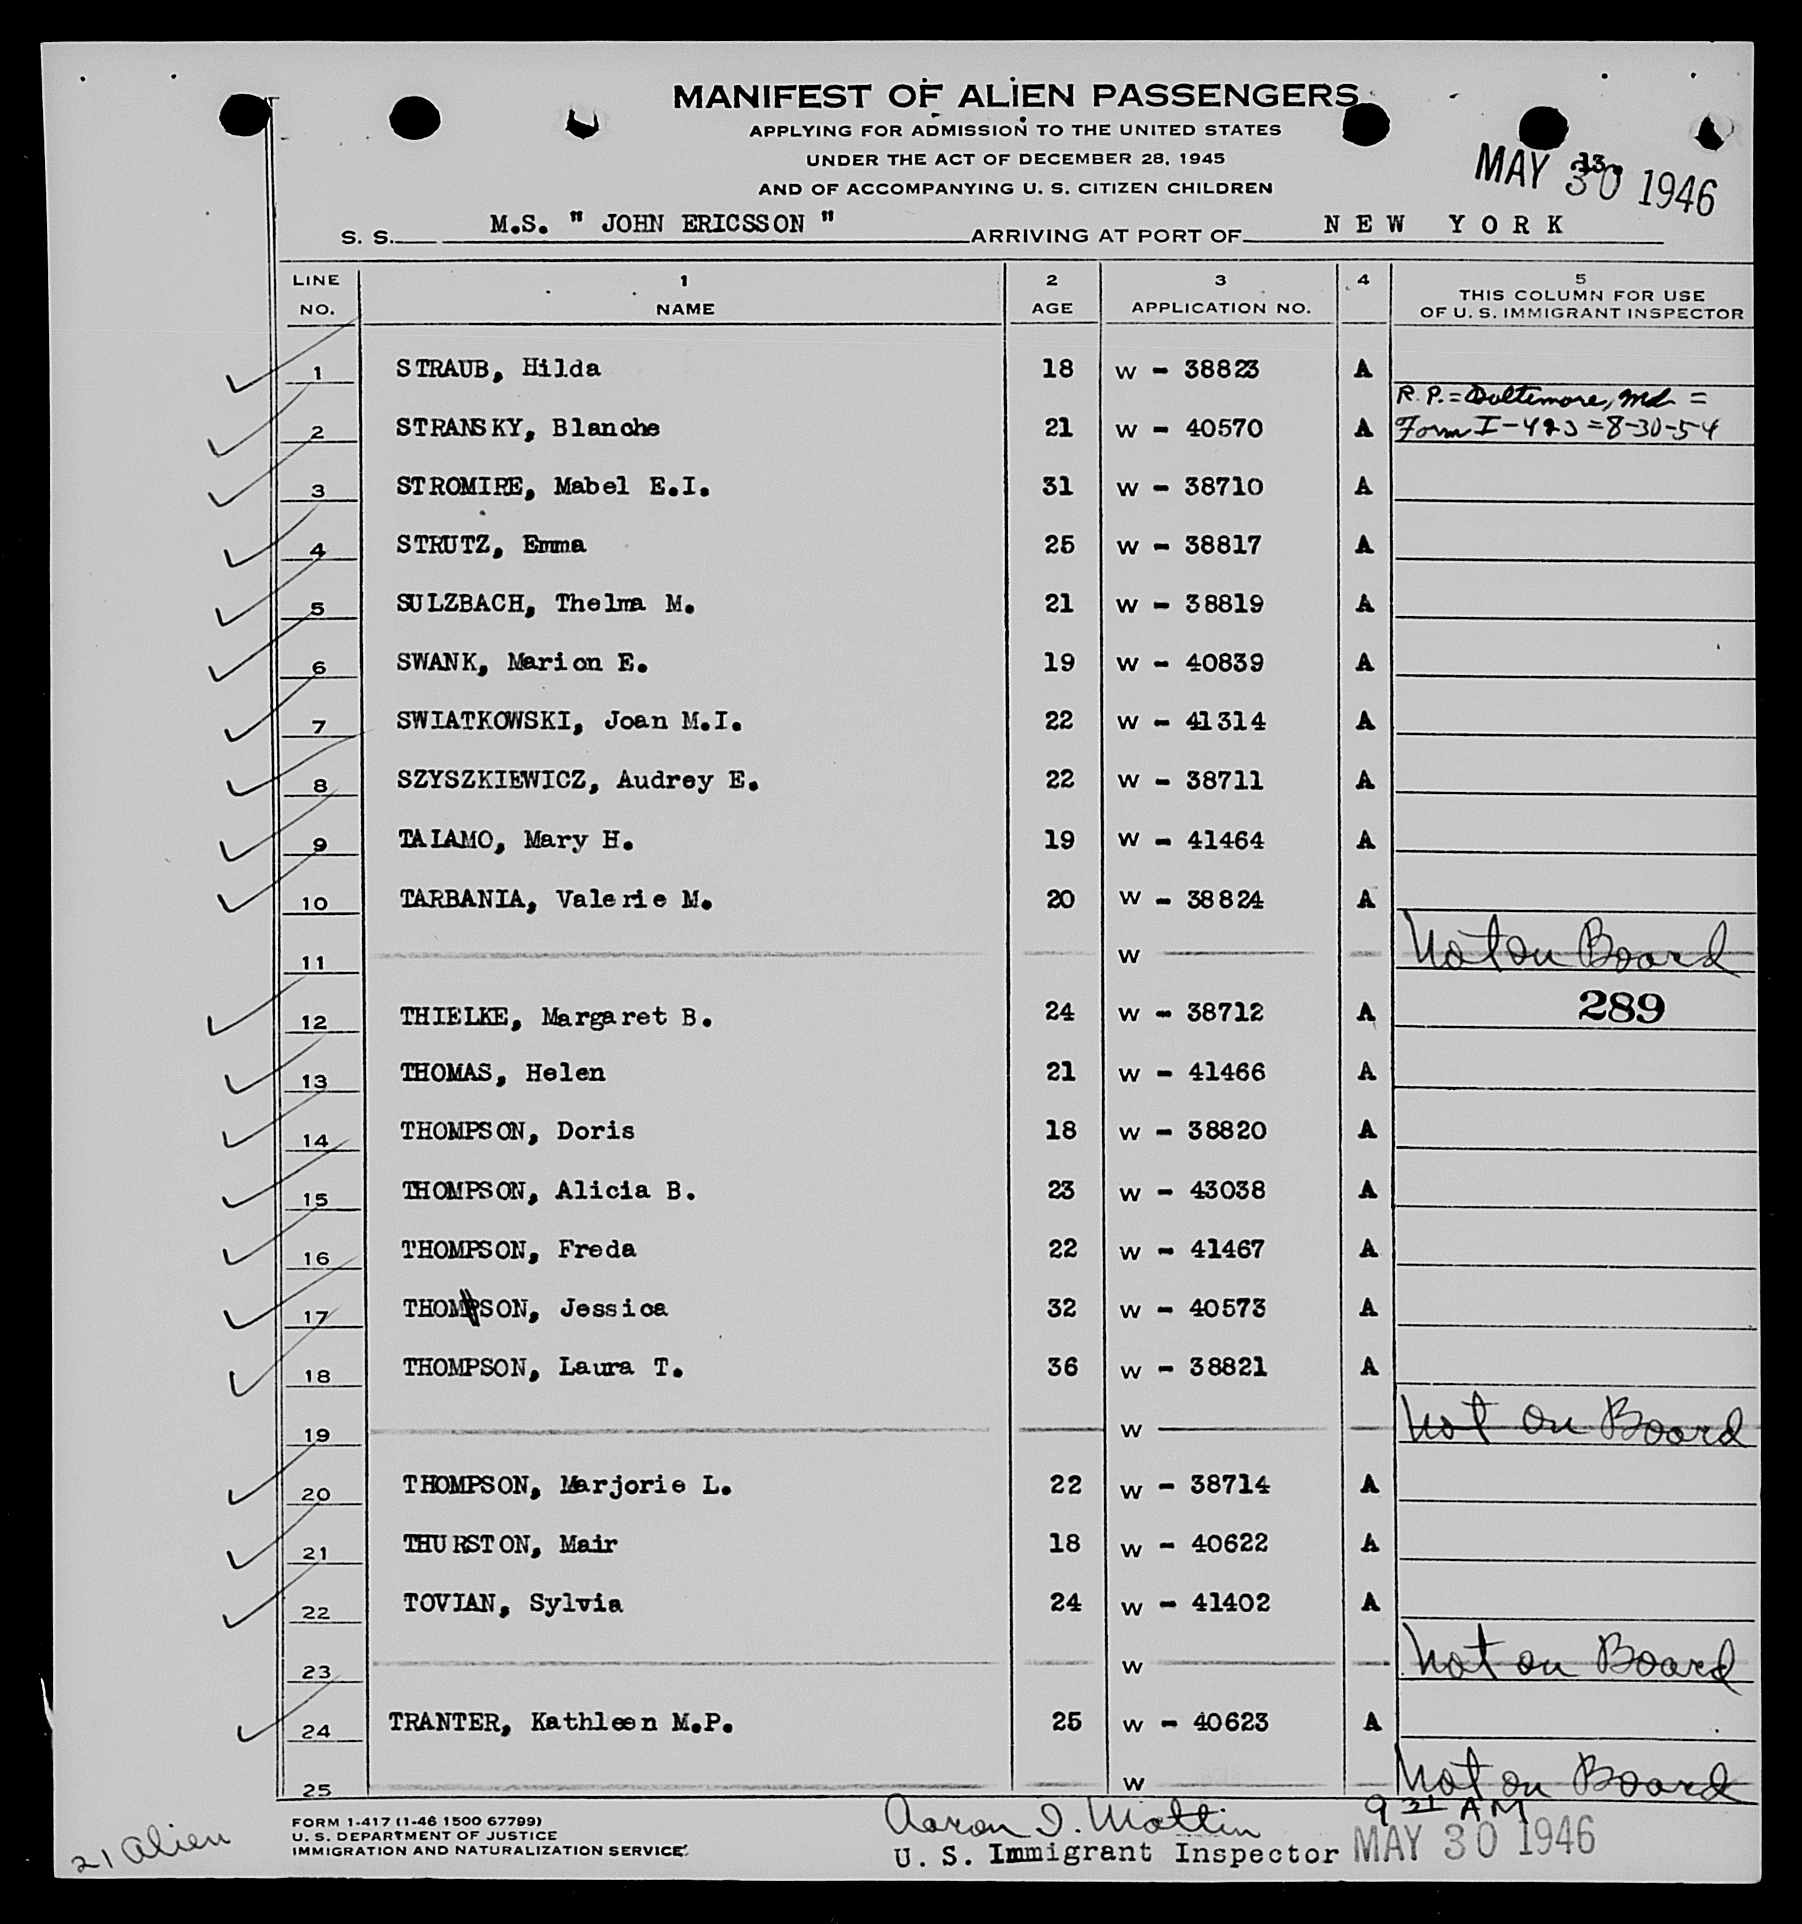 MANIFEST OF ALIEN PASSENGERS
APPLYING FOR ADMISSION TO THE UNITED STATES
UNDER THE ACT OF DECEMBER 28, 1945
AND OF ACCOMPANYING U. S. CITIZEN CHILDREN
MAY 30 1946
S. S. M.S. " JOHN ERICSSON " ARRIVING AT PORT OF N E W Y O R K
LINE NO. 1 NAME 2 AGE 3 APPLICATION NO. 4 5 THIS COLUMN FOR USE OF U. S. IMMIGRANT INSPECTOR
1 STRAUB, Hilda 18 W - 38823 A
R. P. = Baltimore, Md =
2 STRANSKY, Blanche 21 W - 40570 A Form I-423 = 8-30-54
3 STROMIRE, Mabel E.I. 31 W - 38710 A
4 STRUTZ, Emma 25 W - 38817 A
5 SULZBACH, Thelma M. 21 W - 38819 A
6 SWANK, Marion E. 19 W - 40839 A
7 SWIATKOWSKI, Joan M.I. 22 W - 41314 A
8 SZYSZKIEWICZ, Audrey E. 22 W - 38711 A
9 TALAMO, Mary H. 19 W - 41464 A
10 TARBANIA, Valerie M. 20 W - 38824 A
11 W Not on Board
12 THIELKE, Margaret B. 24 W - 38712 A 289
13 THOMAS, Helen 21 W - 41466 A
14 THOMPSON, Doris 18 W - 38820 A
15 THOMPSON, Alicia B. 23 W - 43038 A
16 THOMPSON, Freda 22 W - 41467 A
17 THOMPSON, Jessica 32 W - 40573 A
18 THOMPSON, Laura T. 36 W - 38821 A
19 W Not on Board
20 THOMPSON, Marjorie L. 22 W - 38714 A
21 THURSTON, Mair 18 W - 40622 A
22 TOVIAN, Sylvia 24 W - 41402 A
23 W Not on Board
24 TRANTER, Kathleen M.P. 25 W - 40623 A
25 W Not on Board
FORM I-417 (1-46 1500 67799)
U. S. DEPARTMENT OF JUSTICE
IMMIGRATION AND NATURALIZATION SERVICE
21 alien
Aaron I. Mattin
U. S. Immigrant Inspector
9 31 AM
MAY 30 1946